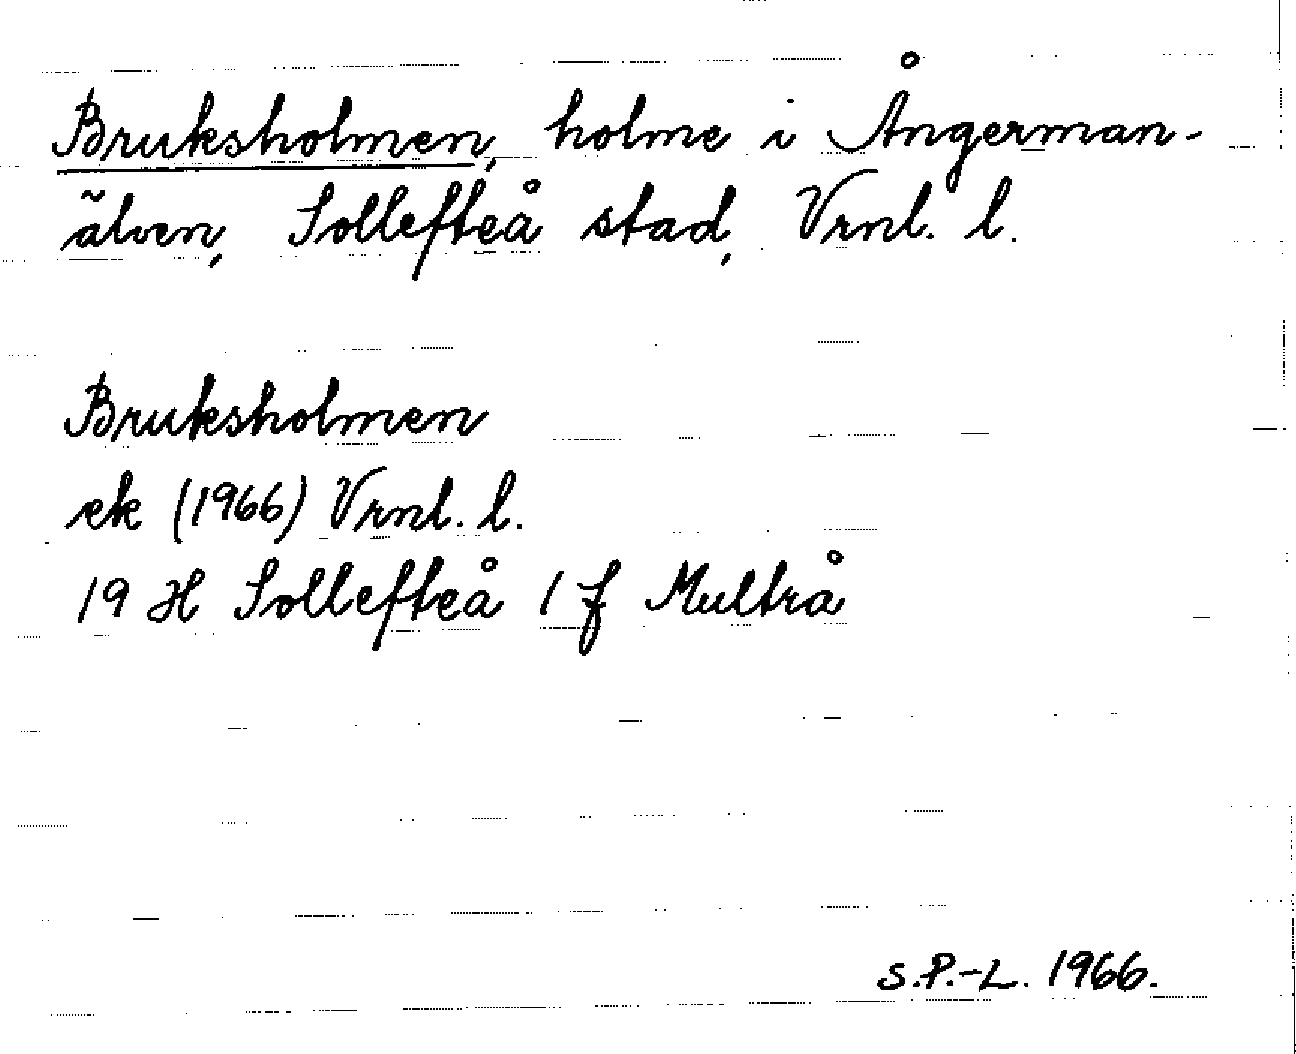 Bruksholmen, holme i Ångerman-
älven, Sollefteå stad, Vrnl. l.
Bruksholmen
ek (1966) Vrnl. l.
19 H Sollefteå 1 f Multrå
S.P.-L. 1966.